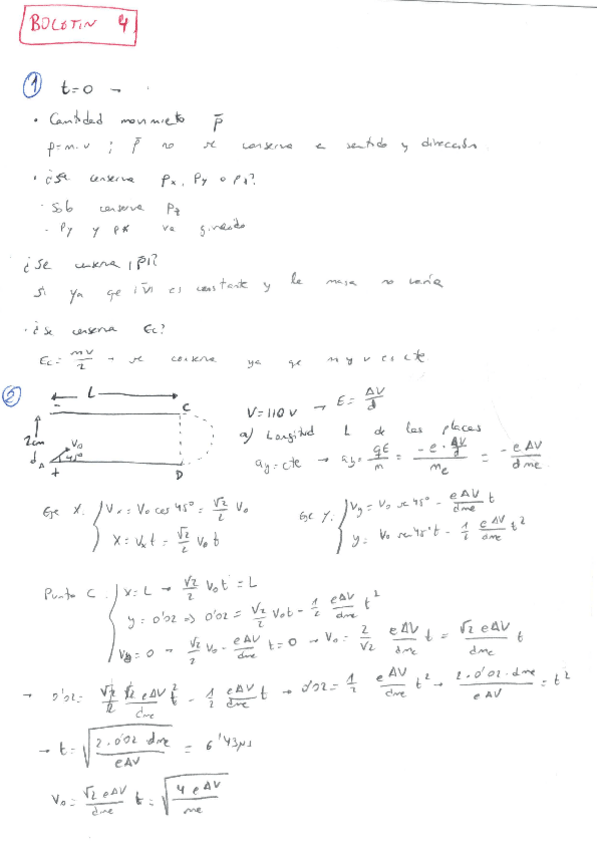 BOLETIN 4
① t=0 →
• Cantidad movimiento p̄
p=m·v ; p̄ no se conserva e sentido y dirección.
• ¿Se conserva Px, Py o Pz?
· Solo conserva Pz
· Py y Px va girando
¿Se conserva |P̄|?
Si ya que |v̄| es constante y la masa no varía
· ¿Se conserva Ec?
Ec = mv/2 → se conserva ya que m y v es cte
② ← L → C
2cm
d
A V₀ 45° + - D
V=110 V → E = ΔV/d
a) Longitud L de las placas
ay=cte → ay = qE/m = -e·ΔV/d / me = -eΔV/dme
Eje X. { Vx = V₀ cos 45° = √2/2 V₀
X = Vx t = √2/2 V₀ t
Eje Y. { Vy = V₀ se 45° - eΔV/dme t
y = V₀ se 45° t - 1/2 eΔV/dme t²
Punto C. { x=L → √2/2 V₀t = L
y = 0'02 ⇒ 0'02 = √2/2 V₀t - 1/2 eΔV/dme t²
Vy = 0 → √2/2 V₀ - eΔV/dme t = 0 → V₀ = 2/√2 eΔV/dme t = √2 eΔV/dme t
→ 0'02 = √2/2 √2 eΔV/dme t² - 1/2 eΔV/dme t → 0'02 = 1/2 eΔV/dme t² → 2·0'02·dme/eΔV = t²
→ t = √(2·0'02·dme/eΔV) = 6'43µs
V₀ = √2 eΔV/dme t = √(4eΔV/me)